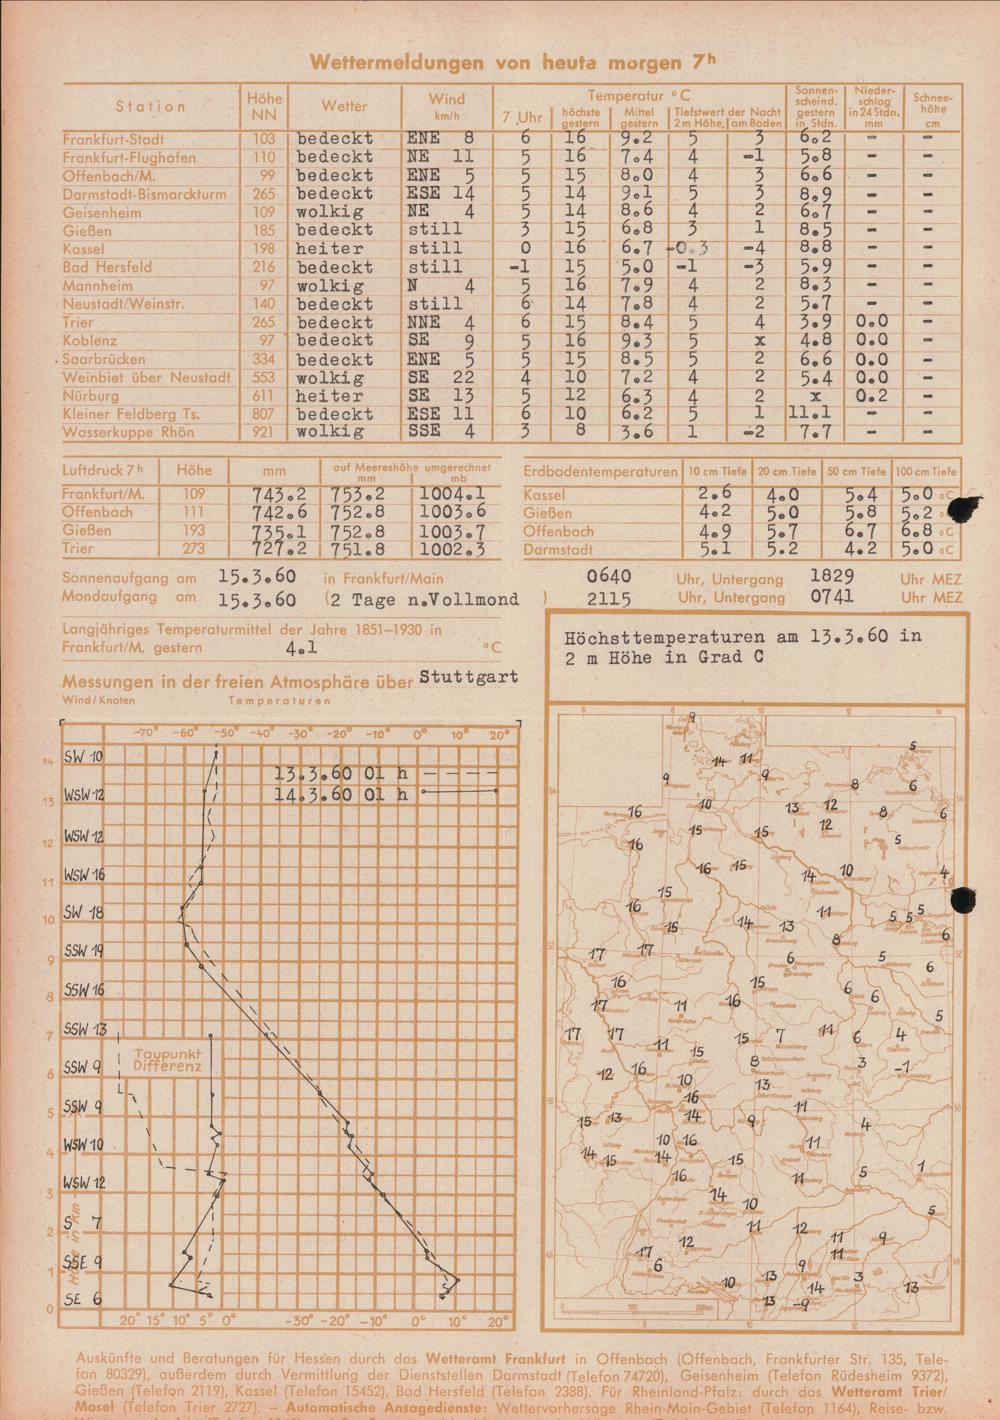 Wettermeldungen von heute morgen 7h
Station Höhe NN Wetter Wind km/h Temperatur °C Sonnenscheind. gestern in Stdn. Niederschlag in 24 Stdn. mm Schneehöhe cm
7 Uhr höchste gestern Mittel gestern Tiefstwert der Nacht 2 m Höhe, am Boden
Frankfurt-Stadt 103 bedeckt ENE 8 6 16 9.2 5 3 6.2 - -
Frankfurt-Flughafen 110 bedeckt NE 11 5 16 7.4 4 -1 5.8 - -
Offenbach/M. 99 bedeckt ENE 5 5 15 8.0 4 3 6.6 - -
Darmstadt-Bismarckturm 265 bedeckt ESE 14 5 14 9.1 5 3 8.9 - -
Geisenheim 109 wolkig NE 4 5 14 8.6 4 2 6.7 - -
Gießen 185 bedeckt still 3 15 6.8 3 1 8.5 - -
Kassel 198 heiter still 0 16 6.7 -0.3 -4 8.8 - -
Bad Hersfeld 216 bedeckt still -1 15 5.0 -1 -3 5.9 - -
Mannheim 97 wolkig N 4 5 16 7.9 4 2 8.3 - -
Neustadt/Weinstr. 140 bedeckt still 6 14 7.8 4 2 5.7 - -
Trier 265 bedeckt NNE 4 6 15 8.4 5 4 3.9 0.0 -
Koblenz 97 bedeckt SE 9 5 16 9.3 5 x 4.8 0.0 -
Saarbrücken 334 bedeckt ENE 5 5 15 8.5 5 2 6.6 0.0 -
Weinbiet über Neustadt 553 wolkig SE 22 4 10 7.2 4 2 5.4 0.0 -
Nürburg 611 heiter SE 13 5 12 6.3 4 2 x 0.2 -
Kleiner Feldberg Ts. 807 bedeckt ESE 11 6 10 6.2 5 1 11.1 - -
Wasserkuppe Rhön 921 wolkig SSE 4 3 8 3.6 1 -2 7.7 - -
Luftdruck 7h Höhe mm auf Meereshöhe umgerechnet mm mb
Frankfurt/M. 109 743.2 753.2 1004.1
Offenbach 111 742.6 752.8 1003.6
Gießen 193 735.1 752.8 1003.7
Trier 273 727.2 751.8 1002.3
Erdbodentemperaturen 10 cm Tiefe 20 cm Tiefe 50 cm Tiefe 100 cm Tiefe
Kassel 2.6 4.0 5.4 5.0 °C
Gießen 4.2 5.0 5.8 5.2
Offenbach 4.9 5.7 6.7 6.8 °C
Darmstadt 5.1 5.2 4.2 5.0 °C
Sonnenaufgang am 15.3.60 in Frankfurt/Main 0640 Uhr, Untergang 1829 Uhr MEZ
Mondaufgang am 15.3.60 (2 Tage n.Vollmond ) 2115 Uhr, Untergang 0741 Uhr MEZ
Langjähriges Temperaturmittel der Jahre 1851–1930 in
Frankfurt/M. gestern 4.1 °C
Messungen in der freien Atmosphäre über Stuttgart
Wind/Knoten Temperaturen
-70° -60° -50° -40° -30° -20° -10° 0° 10° 20°
14 SW 10
13.3.60 01 h
14.3.60 01 h
13 WSW 12
12 WSW 12
11 WSW 16
10 SW 18
9 SSW 19
8 SSW 16
7 SSW 13
Taupunkt
Differenz
6 SSW 9
5 SSW 9
4 WSW 10
3 WSW 12
2 S 7
1 SSE 9
0 SE 6
Höhe in Km
20° 15° 10° 5° 0° -30° -20° -10° 0° 10° 20°
Höchsttemperaturen am 13.3.60 in
2 m Höhe in Grad C
6 8 10 12 14
9
14 11 5
9 9 8 6
16 10 13 12 8 6
16 15 15 12 5
16 15 14 10 4
15
16 15 14 13 11 5 5 5
17 17 8 6
6 5 6
16 15
17 11 16 6 6
5
17 17 11 15 7 11 6 4
15 8 3 -1
12 16 10 13
16
15 13 14 9 11 4
10 16 11
14 15 14 15 1
16 12 5
14 10 5
11 12
12 11 9
17 11
6 9
10 13 14 3 13
13 -9
0 100 200km
Auskünfte und Beratungen für Hessen durch das Wetteramt Frankfurt in Offenbach (Offenbach, Frankfurter Str. 135, Tele-
fon 80329), außerdem durch Vermittlung der Dienststellen Darmstadt (Telefon 74720), Geisenheim (Telefon Rüdesheim 9372),
Gießen (Telefon 2119), Kassel (Telefon 15452), Bad Hersfeld (Telefon 2388). Für Rheinland-Pfalz: durch das Wetteramt Trier/
Mosel (Telefon Trier 2727). – Automatische Ansagedienste: Wettervorhersage Rhein-Main-Gebiet (Telefon 1164), Reise- bzw.